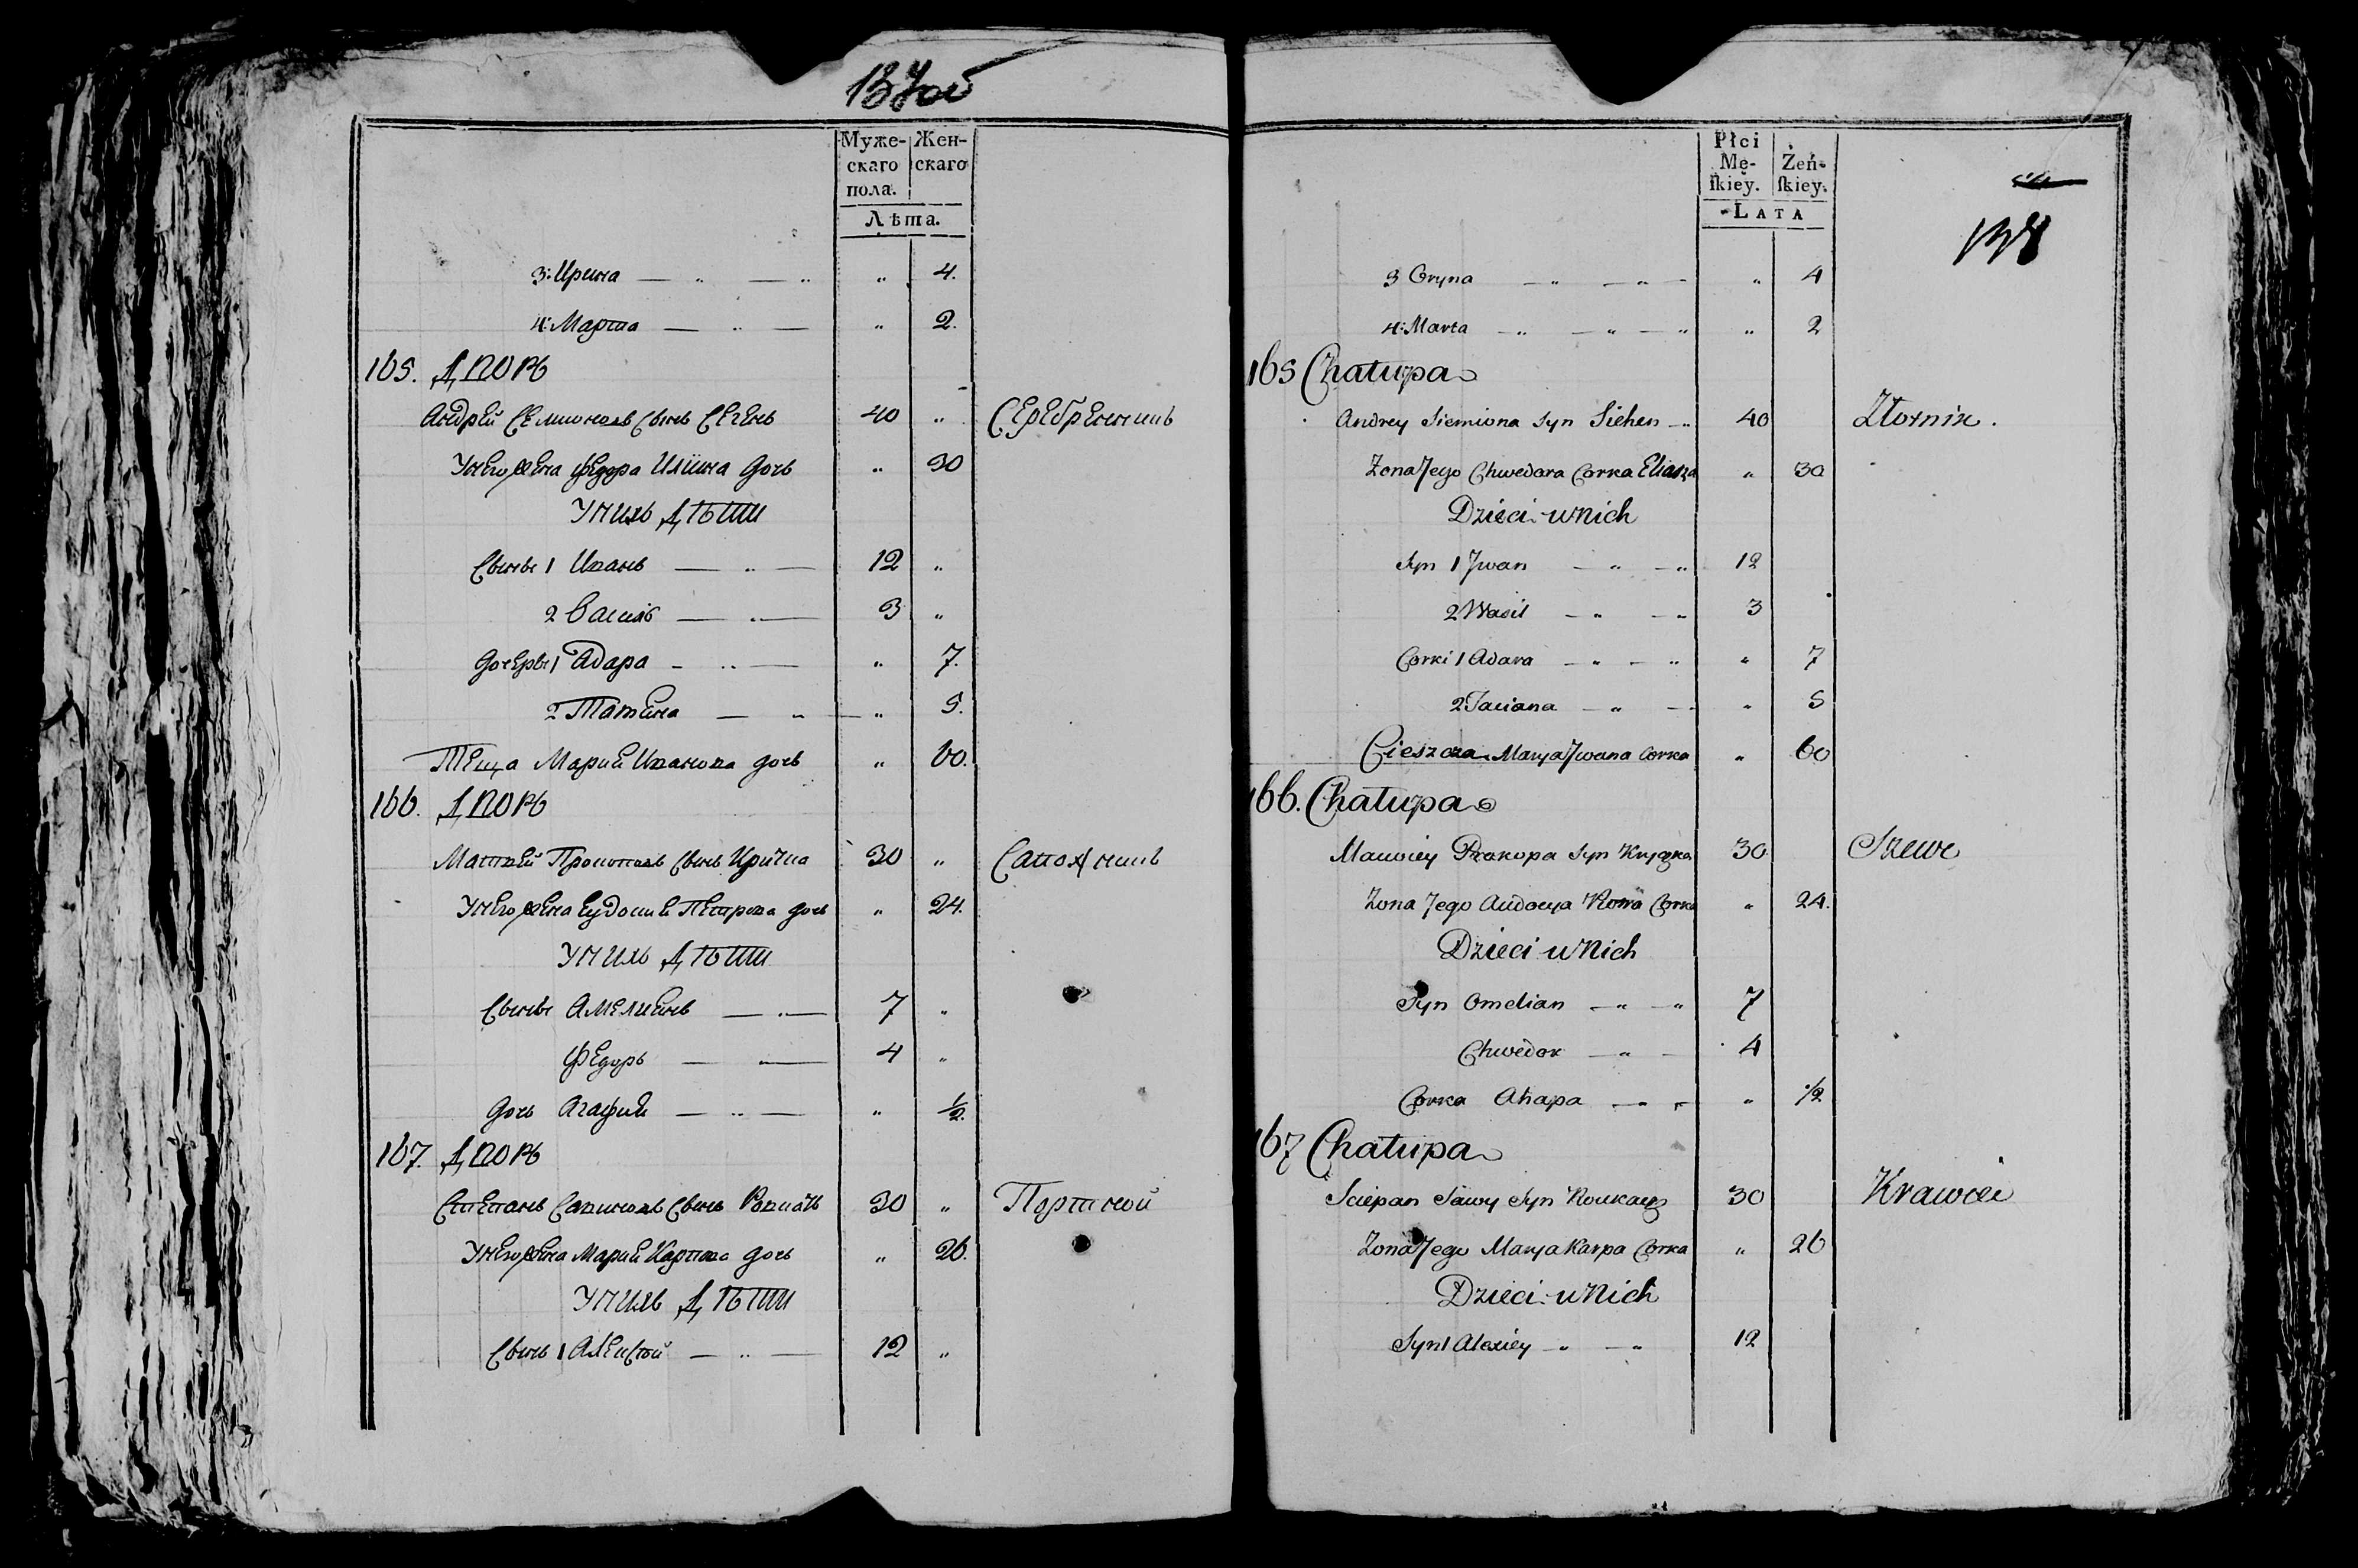 137об
Муже-
скаго
пола.
Жен-
скаго
Лѣта.
3: Ирина — „ — „ „ 4.
4: Марта — „ — „ 2.
165. Дворъ
Андрей Семионовъ сынъ Сегень 40 „ Серебренникъ
У него жена Федора Илїина дочь „ 30
У нихъ дѣти
Сыновья 1 Иванъ — „ — 12 „
2 Василь — „ — 3 „
Дочери 1 Адара — „ — „ 7.
2 Татїана — „ — „ 5.
Теща Марий Иванова дочь „ 60.
166. Дворъ
Матвей Прокоповъ сынъ 30 „ Сапожникъ
У него жена Еудокий Петрова дочь „ 24.
У нихъ дѣти
Сыновья Амелиянъ — „ — 7 „
Федоръ — „ — 4 „
Дочь Агафий — „ — „ 1/2.
167. Дворъ
Степанъ Савиновъ сынъ 30 „ Портной
У него жена Марий Карпова дочь „ 26.
У нихъ дѣти
Сынъ 1 Алексей — „ — 12 „
Płci
Mę-
ſkiey.
Żeń-
ſkiey.
LATA
138
3 Oryna — „ — „ — „ 4
4: Marta — „ — „ — „ „ 2
165 Chatupa
Andrey Siemiona Syn Siehen — „ 40 Złotnik.
Zona Jego Chwedora Corka Eliasza „ 30
Dzieci u Nich
Syn 1 Jwan — „ — „ 12
2 Wasil — „ — „ 3
Corki 1 Adara — „ — „ „ 7
2 Taciana — „ — „ 5
Cieszcza Marya Jwana Corka „ 60
166. Chatupa
Maciey Prokopa Syn 30 Szewc
Zona Jego Audocya Corka „ 24.
Dzieci u Nich
Syn Omelian — „ — „ 7
Chwedor — „ — 4
Corka Ahapa — „ — „ 1/2
167 Chatupa
Sciepan Sawy Syn 30 Krawiec
Zona Jego Marya Karpa Corka „ 26
Dzieci u Nich
Syn 1 Alexiey — „ — „ 12